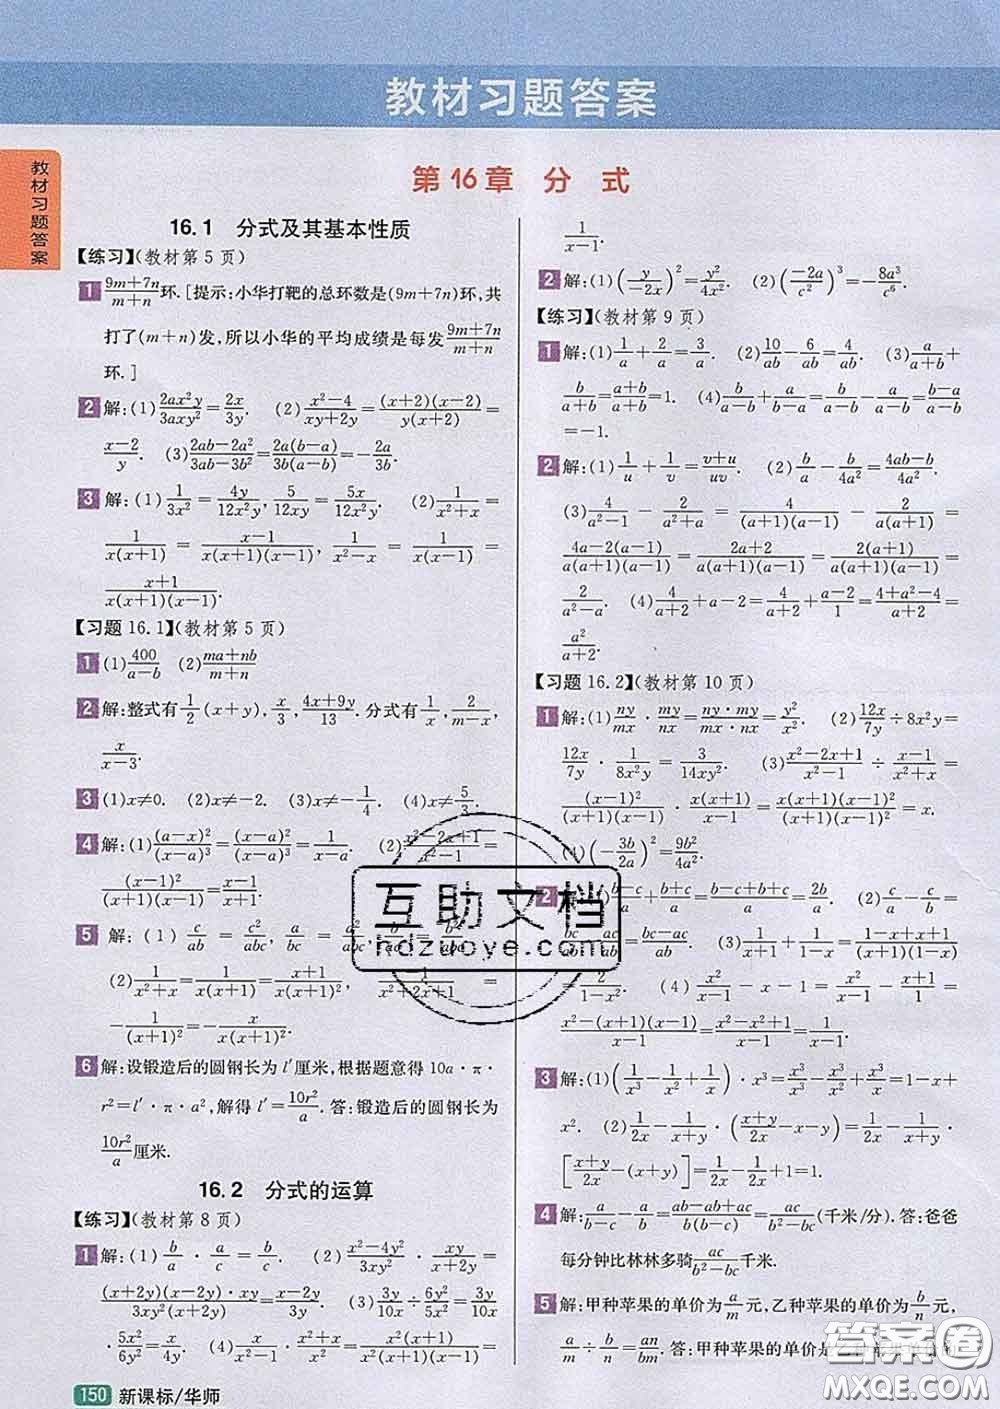 教材习题答案
教材习题答案
第16章 分 式
16.1 分式及其基本性质
【练习】(教材第5页)
1 (9m+7n)/(m+n)环.[提示:小华打靶的总环数是(9m+7n)环,共
打了(m+n)发,所以小华的平均成绩是每发(9m+7n)/(m+n)
环.]
2 解:(1)2ax²y/3axy²=2x/3y. (2)(x²-4)/(xy+2y)=(x+2)(x-2)/y(x+2)=
(x-2)/y. (3)(2ab-2a²)/(3ab-3b²)=2a(b-a)/3b(a-b)=-2a/3b.
3 解:(1)1/3x²=4y/12x²y,5/12xy=5x/12x²y. (2)1/(x²+x)=
1/x(x+1)=(x-1)/x(x+1)(x-1),1/(x²-x)=
(x+1)/x(x+1)(x-1).
【习题16.1】(教材第5页)
1 (1)400/(a-b) (2)(ma+nb)/(m+n)
2 解:整式有1/2(x+y),x/3,(4x+9y)/13.分式有1/x,2/(m-x),
x/(x-3).
3 (1)x≠0. (2)x≠-2. (3)x≠-1/4. (4)x≠5/3.
4 解:(1)(a-x)²/(x-a)³=(x-a)²/(x-a)³=1/(x-a). (2)(x²-2x+1)/(x²-1)=
(x-1)²/(x-1)(x+1)=(x-1)/(x+1).
5 解:(1)c/ab=c²/abc,a/bc=a²/abc,b/ac=b²/abc.
(2)1/(x²+x)=1/x(x+1)=(x+1)/x(x+1)²,-1/(x²+2x+1)=
-1/(x+1)²=-x/x(x+1)².
6 解:设锻造后的圆钢长为l′厘米,根据题意得10a·π·
r²=l′·π·a²,解得l′=10r²/a.答:锻造后的圆钢长为
10r²/a厘米.
16.2 分式的运算
【练习】(教材第8页)
1 解:(1)b/a·a/c=b/c. (2)(x²-4y²)/3xy²·xy/(x+2y)=
(x+2y)(x-2y)·xy/3xy²(x+2y)=(x-2y)/3y. (3)3y/10x÷6y²/5x²=3y/10x
·5x²/6y²=x/4y. (4)
1/(x-1).
2 解:(1)(y/-2x)²=y²/4x². (2)(-2a/c²)³=-8a³/c⁶.
【练习】(教材第9页)
1 解:(1)1/a+2/a=3/a. (2)10/ab-6/ab=4/ab. (3)a/(a+b)+
b/(a+b)=(a+b)/(a+b)=1. (4)b/(a-b)+a/(b-a)=b/(a-b)-a/(a-b)=(b-a)/(a-b)
=-1.
2 解:(1)1/u+1/v=(v+u)/uv. (2)b/a-b/4a²=(4ab-b)/4a².
(3)4/(a²-1)-2/(a²+a)=4/(a+1)(a-1)-2/a(a+1)=
(4a-2(a-1))/a(a+1)(a-1)=(2a+2)/a(a+1)(a-1)=2(a+1)/a(a+1)(a-1)=
2/(a²-a). (4)4/(a+2)+a-2=4/(a+2)+(a²-4)/(a+2)=(4+a²-4)/(a+2)=
a²/(a+2).
【习题16.2】(教材第10页)
1 解:(1)ny/mx·my/nx=ny·my/mx·nx=y²/x². (2)12x/7y÷8x²y=
12x/7y·1/8x²y=3/14xy². (3)(x²-2x+1)/(x²-1)÷(x-1)/(x²+x)=
(x-1)²/(x+1)(x-1)·x(x+1)/(x-1)=x(x-1)²(x+1)/(x+1)(x-1)²=x.
(4)(-3b/2a)²=9b²/4a².
2 解:(b-c)/a+(b+c)/a=(b-c+b+c)/a=2b/a. (2)c/a-c/b=
bc/ab-ac/ab=(bc-ac)/ab. (3)1/(x+1)+1/(1-x)=(1-x+x+1)/(x+1)(1-x)=
2/(1-x²). (4)x²/(x-1)-x-1=x²/(x-1)-
(x²-(x+1)(x-1))/(x-1)=(x²-x²+1)/(x-1)=1/(x-1).
3 解:(1)(1/x³-1/x²+1/x)·x³=x³/x³-x³/x²+x³/x=1-x+
x². (2)1/2x-1/(x+y)·((x+y)/2x-x-y)=1/2x-1/(x+y)·
[(x+y)/2x-(x+y)]=1/2x-1/2x+1=1.
4 解:a/(b-c)-a/b=(ab-ab+ac)/b(b-c)=ac/(b²-bc)(千米/分).答:爸爸
每分钟比林林多骑ac/(b²-bc)千米.
5 解:甲种苹果的单价为a/m元,乙种苹果的单价为b/n元,
a/m÷b/n=an/bm.答:甲种苹果的单价是乙
150 新课标/华师
互助文档
hdzuoye.com
答案圈
MXQE.COM